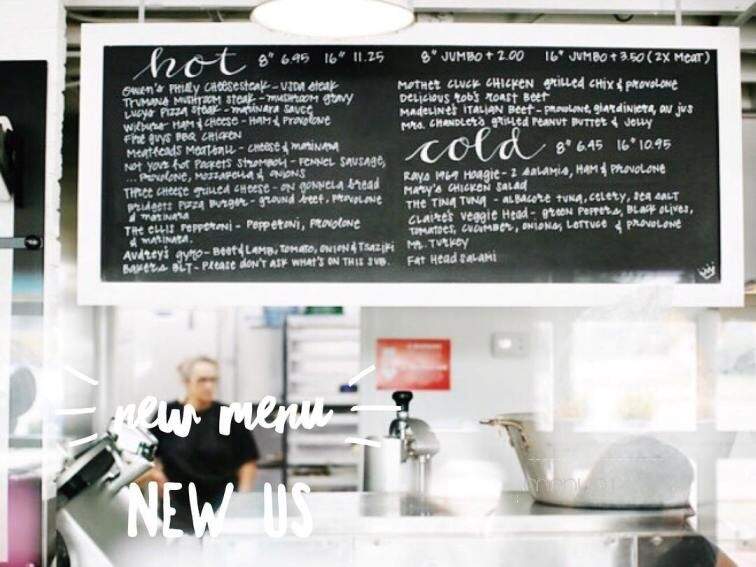 hot 8" 6.95 16" 11.25 8" JUMBO + 2.00 16" JUMBO + 3.50 (2X MEAT)
Gwen's Philly Cheesesteak - USDA steak
Trumans Mushroom steak - mushroom gravy
Lucy's Pizza steak - marinara sauce
Wilburs Ham & Cheese - Ham & Provolone
Fire guys BBQ Chicken
Meatheads Meatball - cheese & marinara
Not your hot Pockets Stromboli - Fennel sausage,
... Provolone, Mozzarella & onions
Three Cheese grilled cheese - on gonnela bread
Bridgets Pizza Burger - ground beef, Provolone
& marinara
The Ellis Pepperoni - Pepperoni, Provolone
& marinara.
Audrey's gyro - Beef & Lamb, Tomato, onion & Tsaziki
Bakers BLT - Please don't ask what's on this sub.
Mother Cluck Chicken grilled chix & provolone
Delicious Rob's Roast Beef
Madeline's Italian Beef - provolone, giardiniera, au jus
Mrs. Chandler's grilled Peanut Butter & Jelly
cold 8" 6.45 16" 10.95
Rays 1969 Hoagie - 2 salamis, Ham & Provolone
Mary's Chicken Salad
The Ting Tung - albacore tuna, celery, sea salt
Claire's Veggie Head - green peppers, Black olives,
Tomatoes, cucumber, onions, lettuce & provolone
Mr. Turkey
Fat Head Salami
new menu
NEW US